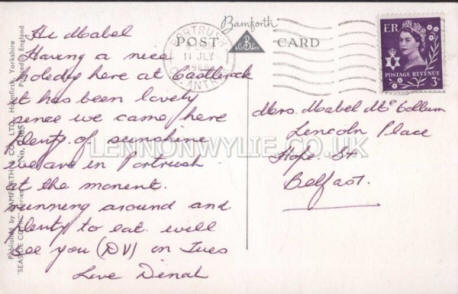 Bamforth
POST CARD
PORTRUSH
11 JLY
ANTRIM
ER
POSTAGE REVENUE
3D
Hi Mabel
Having a nice
holedy here at Castlerock
it has been lovely
since we came here
plenty of sunshine
we are in Portrush
at the monent.
running around and
plenty to eat will
see you (DV) on Tues
Love Dinah
Mrs. Mabel Mc Collum
Lincoln Place
Hope St.
Belfast.
Published by BAMFORTH & CO., LTD., Holmfirth, Yorkshire
"SEASIDE COMIC" Series No.
Printed in England
LENNONWYLIE.CO.UK